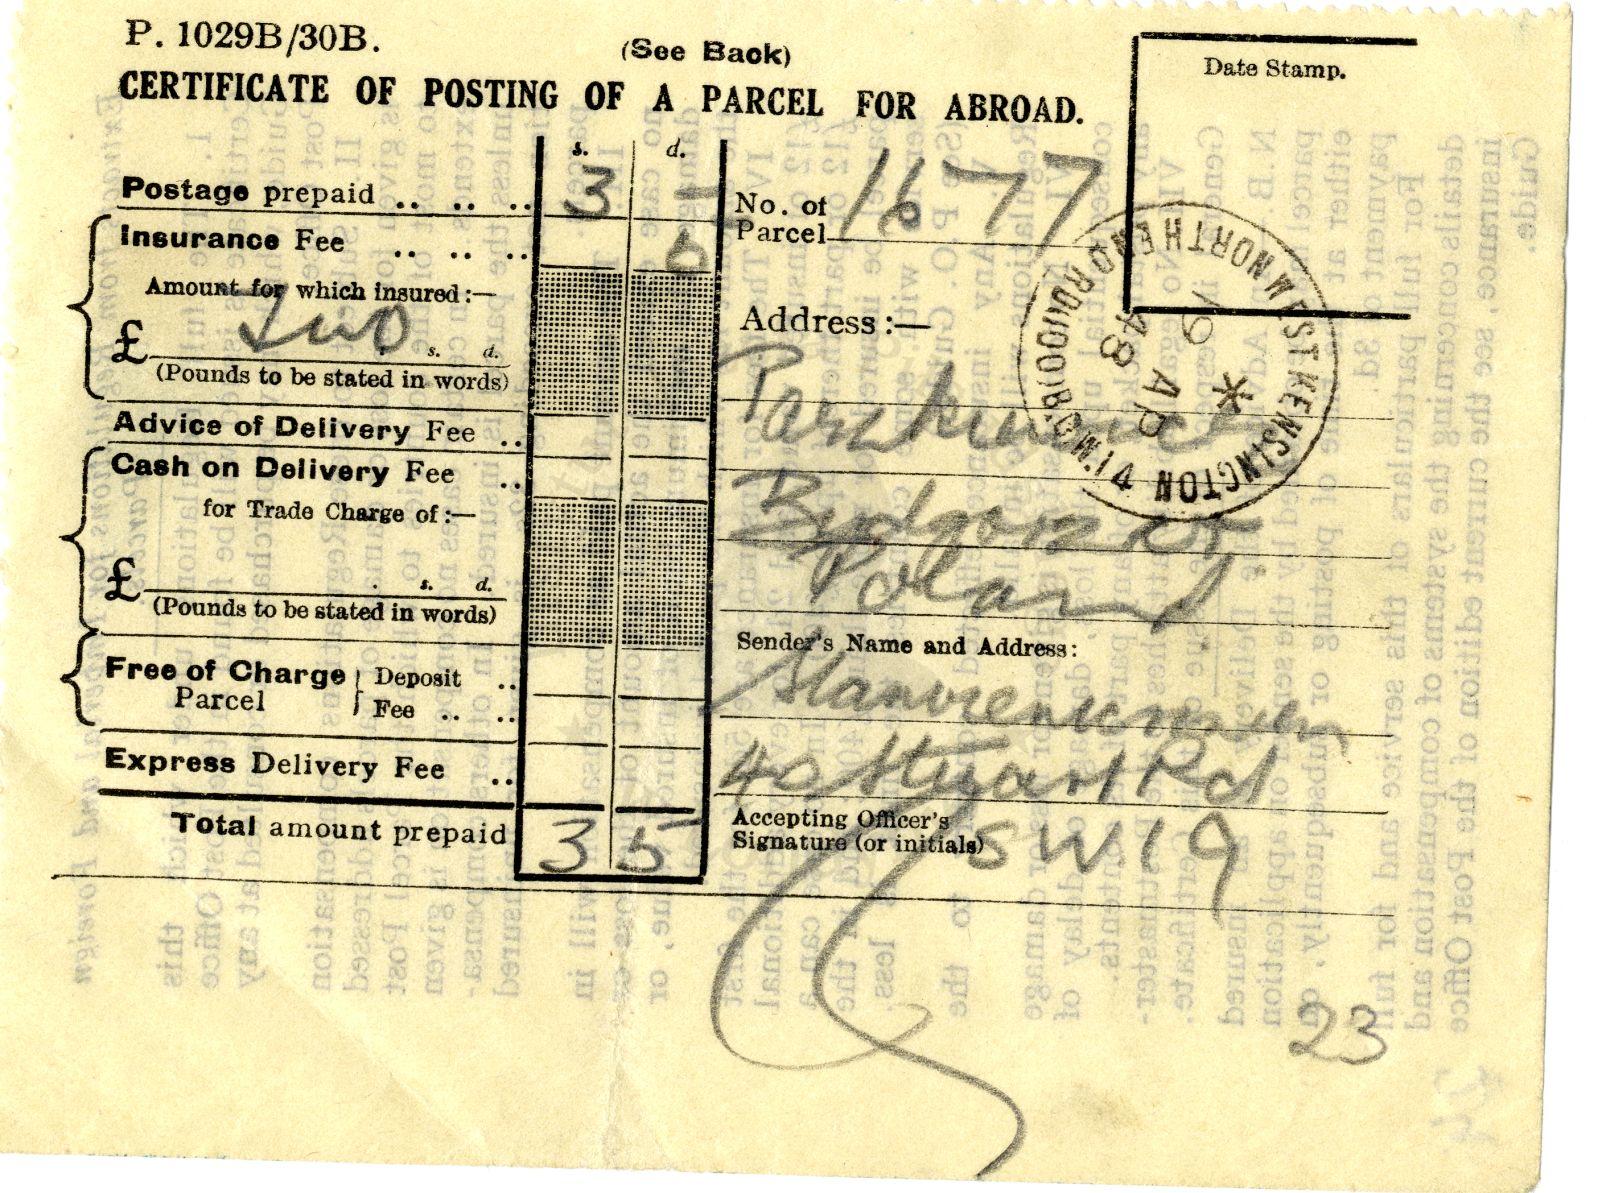 P. 1029B/30B.
(See Back)
CERTIFICATE OF POSTING OF A PARCEL FOR ABROAD.
Date Stamp.
s. d.
Postage prepaid .. .. .. 3 -
Insurance Fee .. .. ..
Amount for which insured:—
£ Two s. d.
(Pounds to be stated in words)
Advice of Delivery Fee ..
Cash on Delivery Fee ..
for Trade Charge of:—
£ . s. d.
(Pounds to be stated in words)
Free of Charge Parcel
Deposit ..
Fee .. ..
Express Delivery Fee ..
Total amount prepaid 3 5
No. of Parcel 1677
Address:—
Bydgoszcz
Poland
Sender's Name and Address:
40 Stuart Rd
SW19
Accepting Officer's
Signature (or initials)
NORTHEND RD (100) B.O. W.14
WEST KENSINGTON
19 AP
48
23